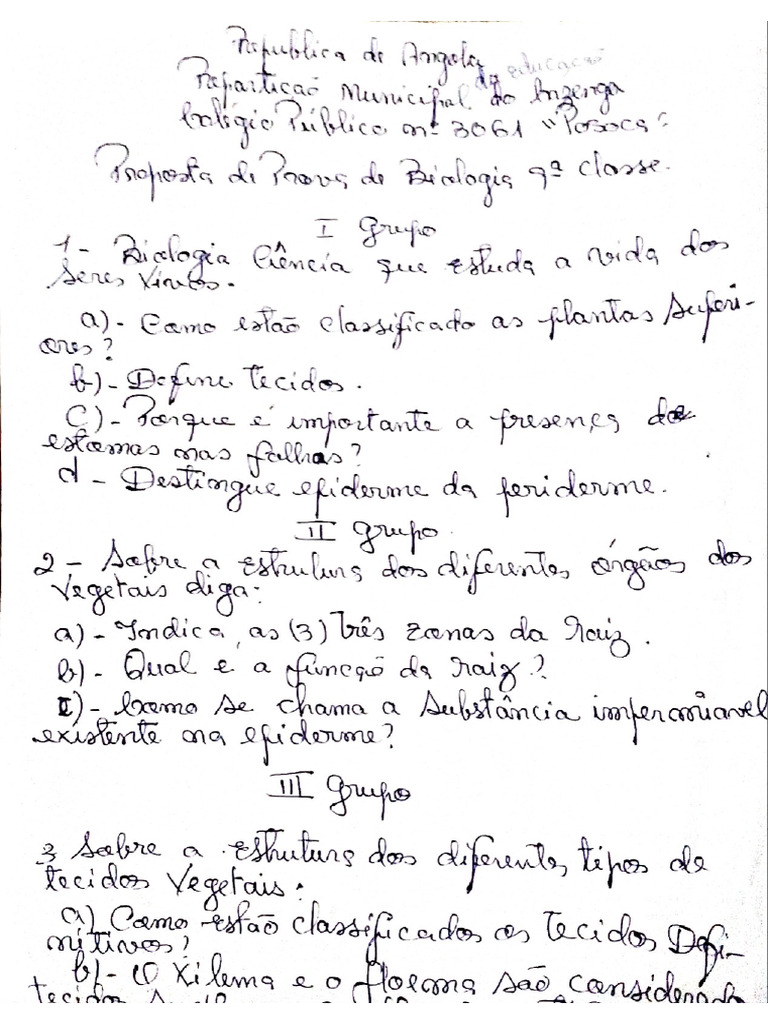 Republica de Angola
Repartição Municipal da educação do Inzenga
Colégio Público nº 3061 "Pococa"
Proposta de Prova de Biologia 9ª classe.
I Grupo
1- Biologia Ciência que estuda a vida dos
seres vivos.
a)- Como estão classificado as plantas Superi-
ores?
b)- Define tecidos.
C)- Porque é importante a presença de
estomas nas folhas?
d - Destingue epiderme da periderme.
II grupo.
2- Sobre a estrutura dos diferentes órgãos dos
vegetais diga:
a)- Indica as (3) três zonas da raiz.
b)- Qual é a função da raiz?
c)- Como se chama a substância impermiavel
existente na epiderme?
III grupo
3 Sobre a estrutura dos diferentes tipos de
tecidos vegetais:
a) Como estão classificados os tecidos Defi-
nitivos?
b)- O Xilema e o floema são considerado
tecidos